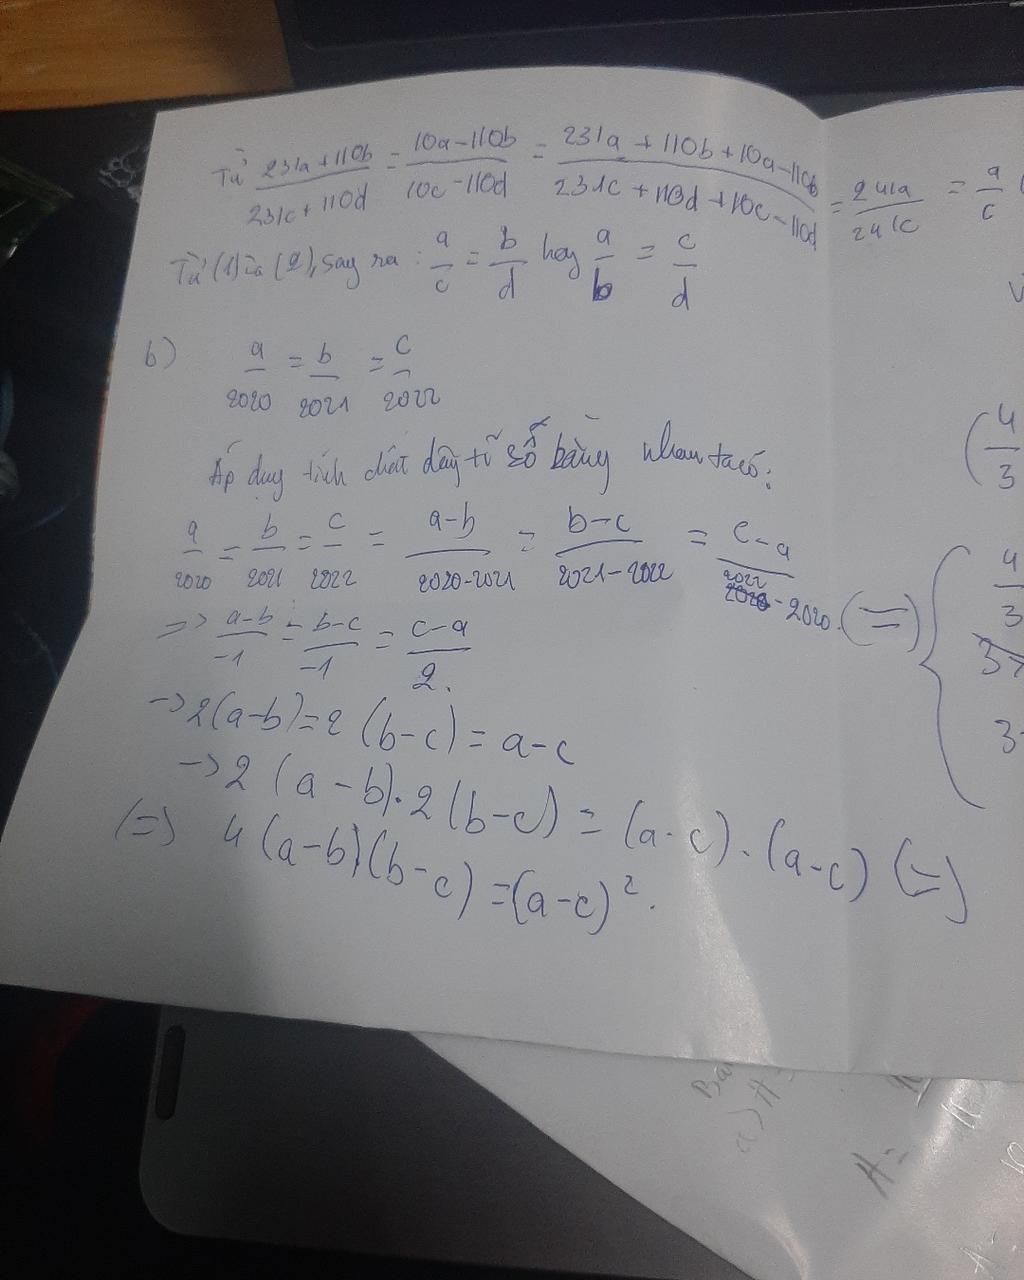 Từ (231a+110b)/(231c+110d) = (10a-110b)/(10c-110d) = (231a+110b+10a-110b)/(231c+110d+10c-110d) = 241a/241c = a/c
Từ (1) và (2), suy ra : a/c = b/d hay a/b = c/d
b) a/2020 = b/2021 = c/2022
Áp dụg tính chất dãy tỉ số bằng nhau ta có:
a/2020 = b/2021 = c/2022 = (a-b)/(2020-2021) = (b-c)/(2021-2022) = (c-a)/(2022-2020).
=> (a-b)/-1 = (b-c)/-1 = (c-a)/2.
-> 2(a-b)=2(b-c)= a-c
-> 2(a-b).2(b-c) = (a-c).(a-c) (=)
(=) 4(a-b)(b-c)=(a-c)².
(4/3
(=) {
4/3
3